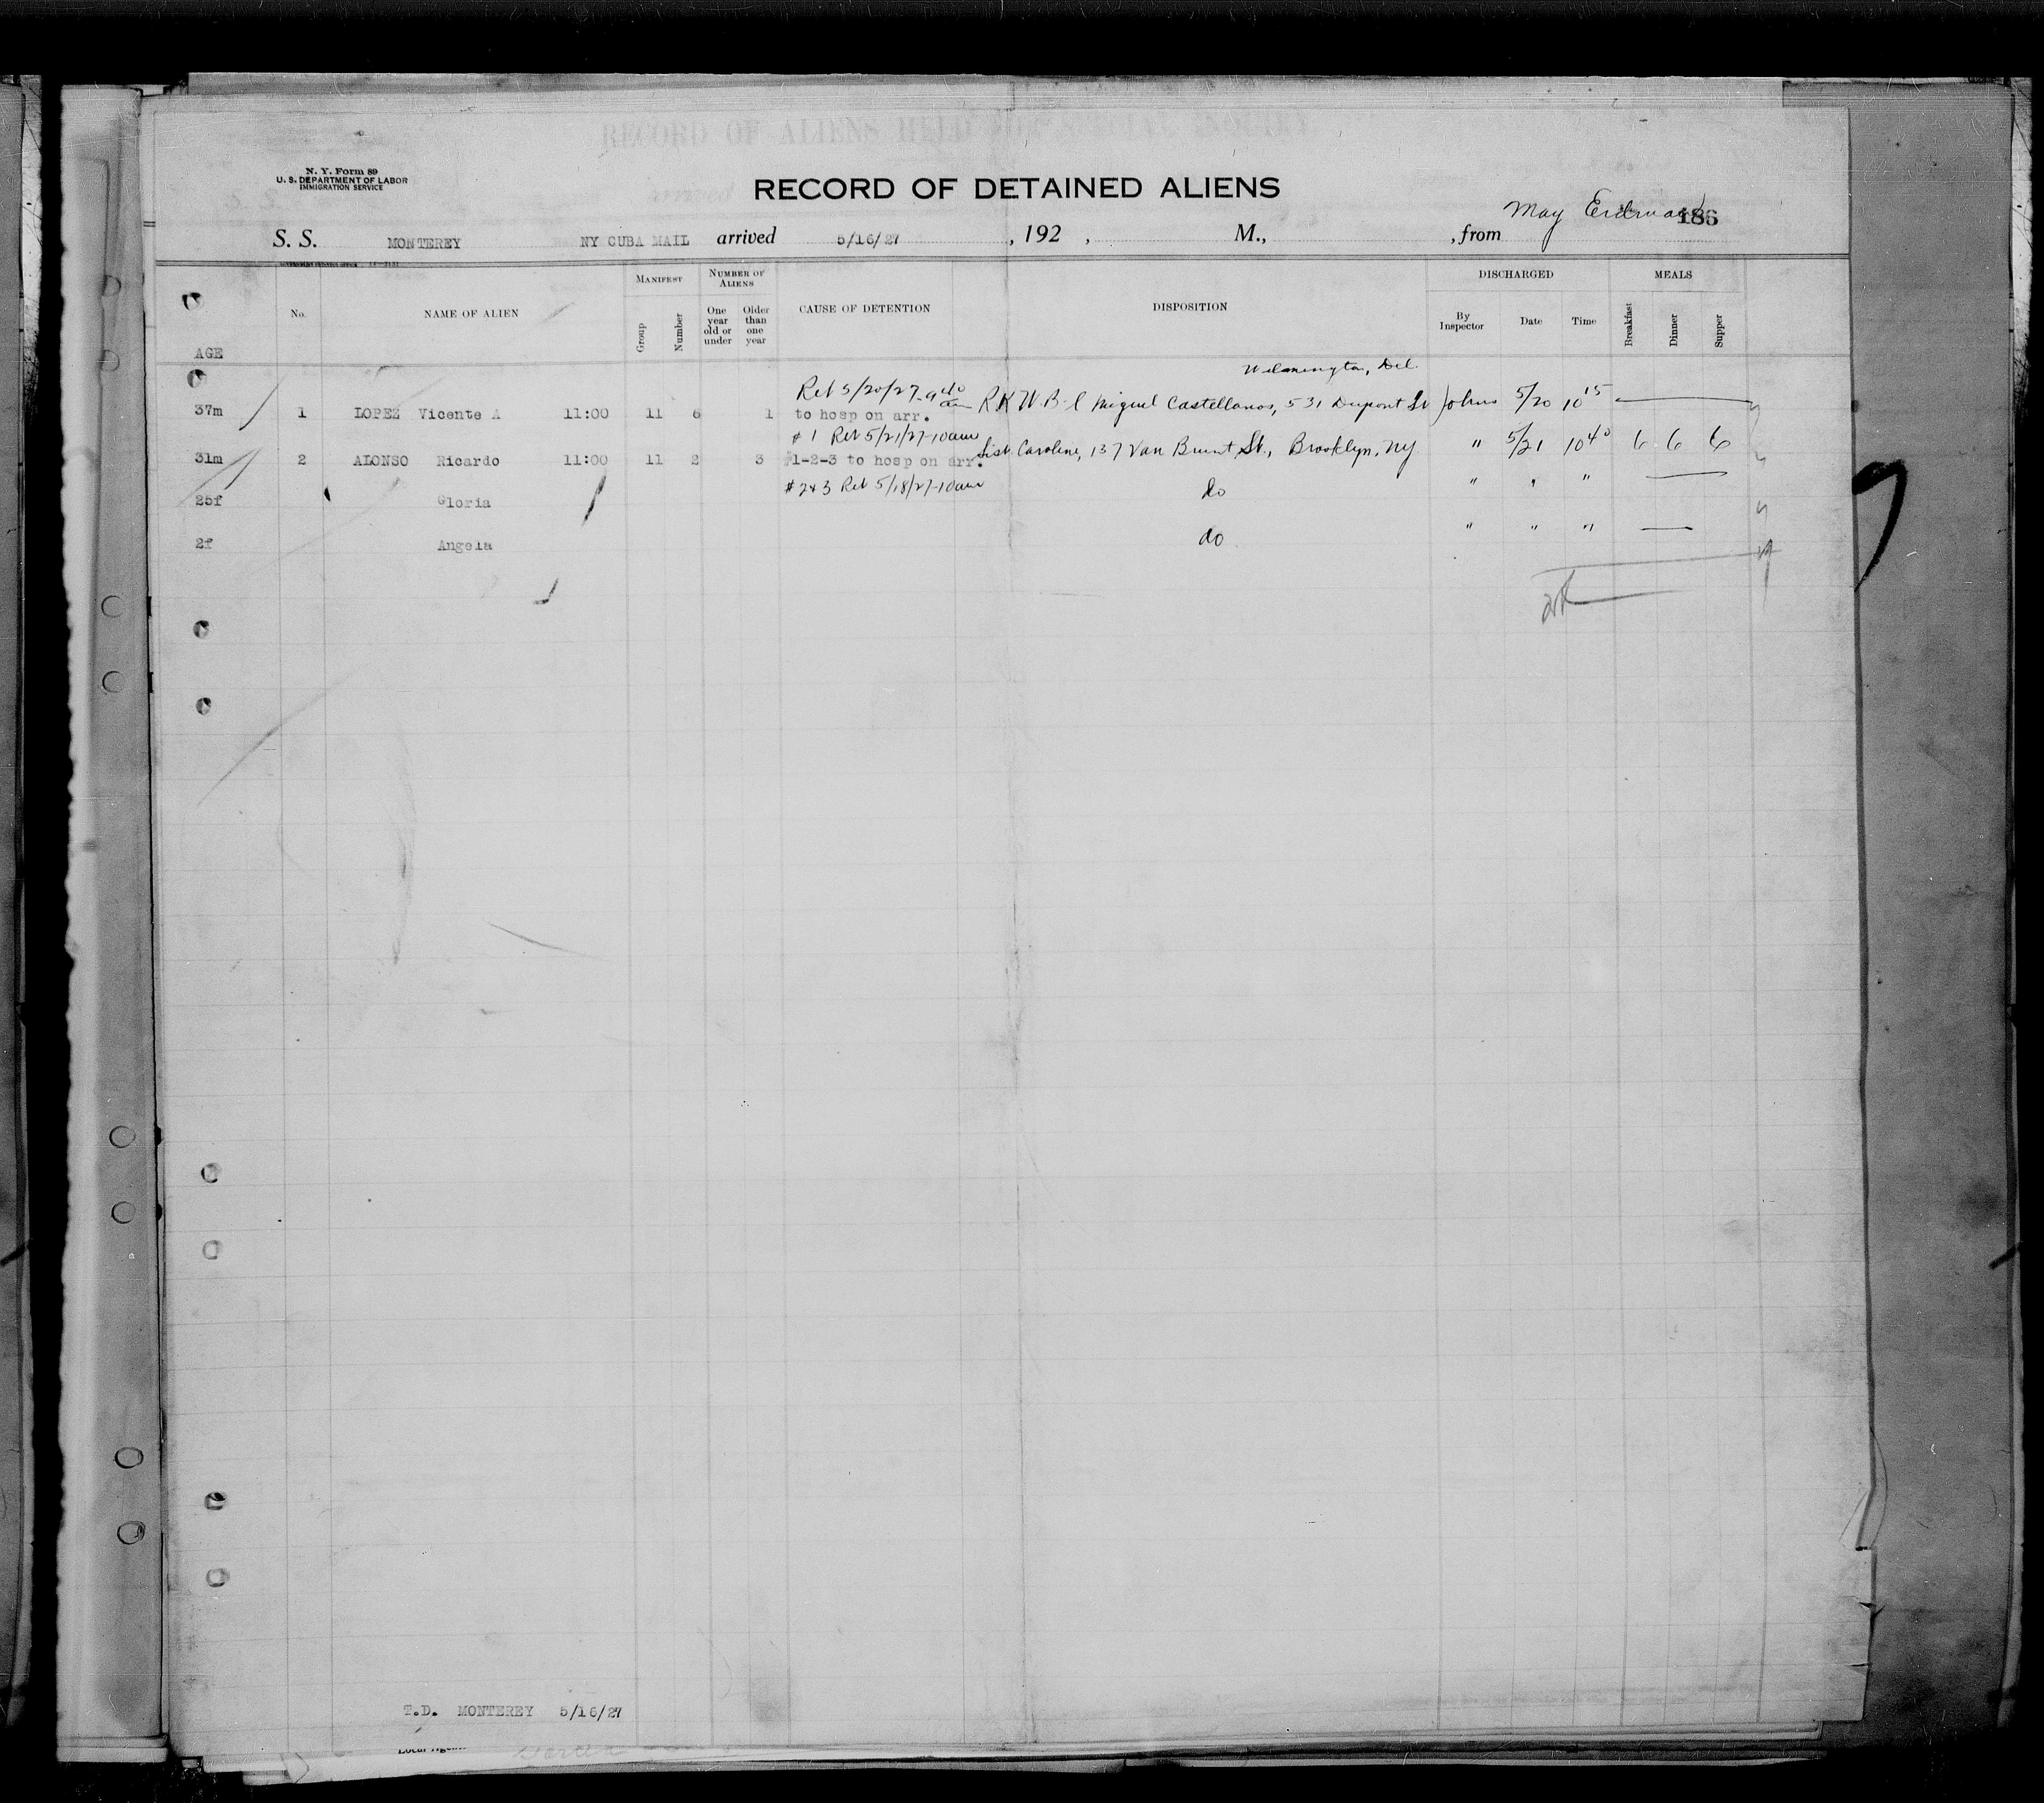 RECORD OF ALIENS HELD FOR SPECIAL INQUIRY
N. Y. Form 89
U. S. DEPARTMENT OF LABOR
IMMIGRATION SERVICE
RECORD OF DETAINED ALIENS
May 186
S. S. MONTEREY NY CUBA MAIL arrived 5/16/27 , 192 , M., , from
AGE No. NAME OF ALIEN MANIFEST Group Number NUMBER OF ALIENS One year old or under Older than one year CAUSE OF DETENTION DISPOSITION DISCHARGED By Inspector Date Time MEALS Breakfast Dinner Supper
Wilmington, Del.
Ret 5/20/27-9 40 am
37m 1 LOPEZ Vicente A 11:00 11 6 1 to hosp on arr. B-l Miguel Castellanos, 531 Dupont St Johns 5/20 10 15
#1 Ret 5/21/27-10am
31m 2 ALONSO Ricardo 11:00 11 2 3 #1-2-3 to hosp on arr. Sist Caroline, 137 Van Brunt St., Brooklyn, NY " 5/21 10 40 6 6 6
#2&3 Ret 5/18/27-10am
25f Gloria do " " "
2f Angela do " " "
T.D. MONTEREY 5/16/27